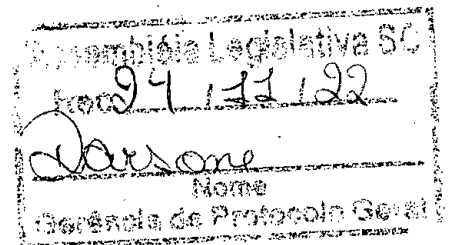 Assembléia Legislativa SC
Rec 24 / 11 / 22
Nome
Gerência de Protocolo Geral